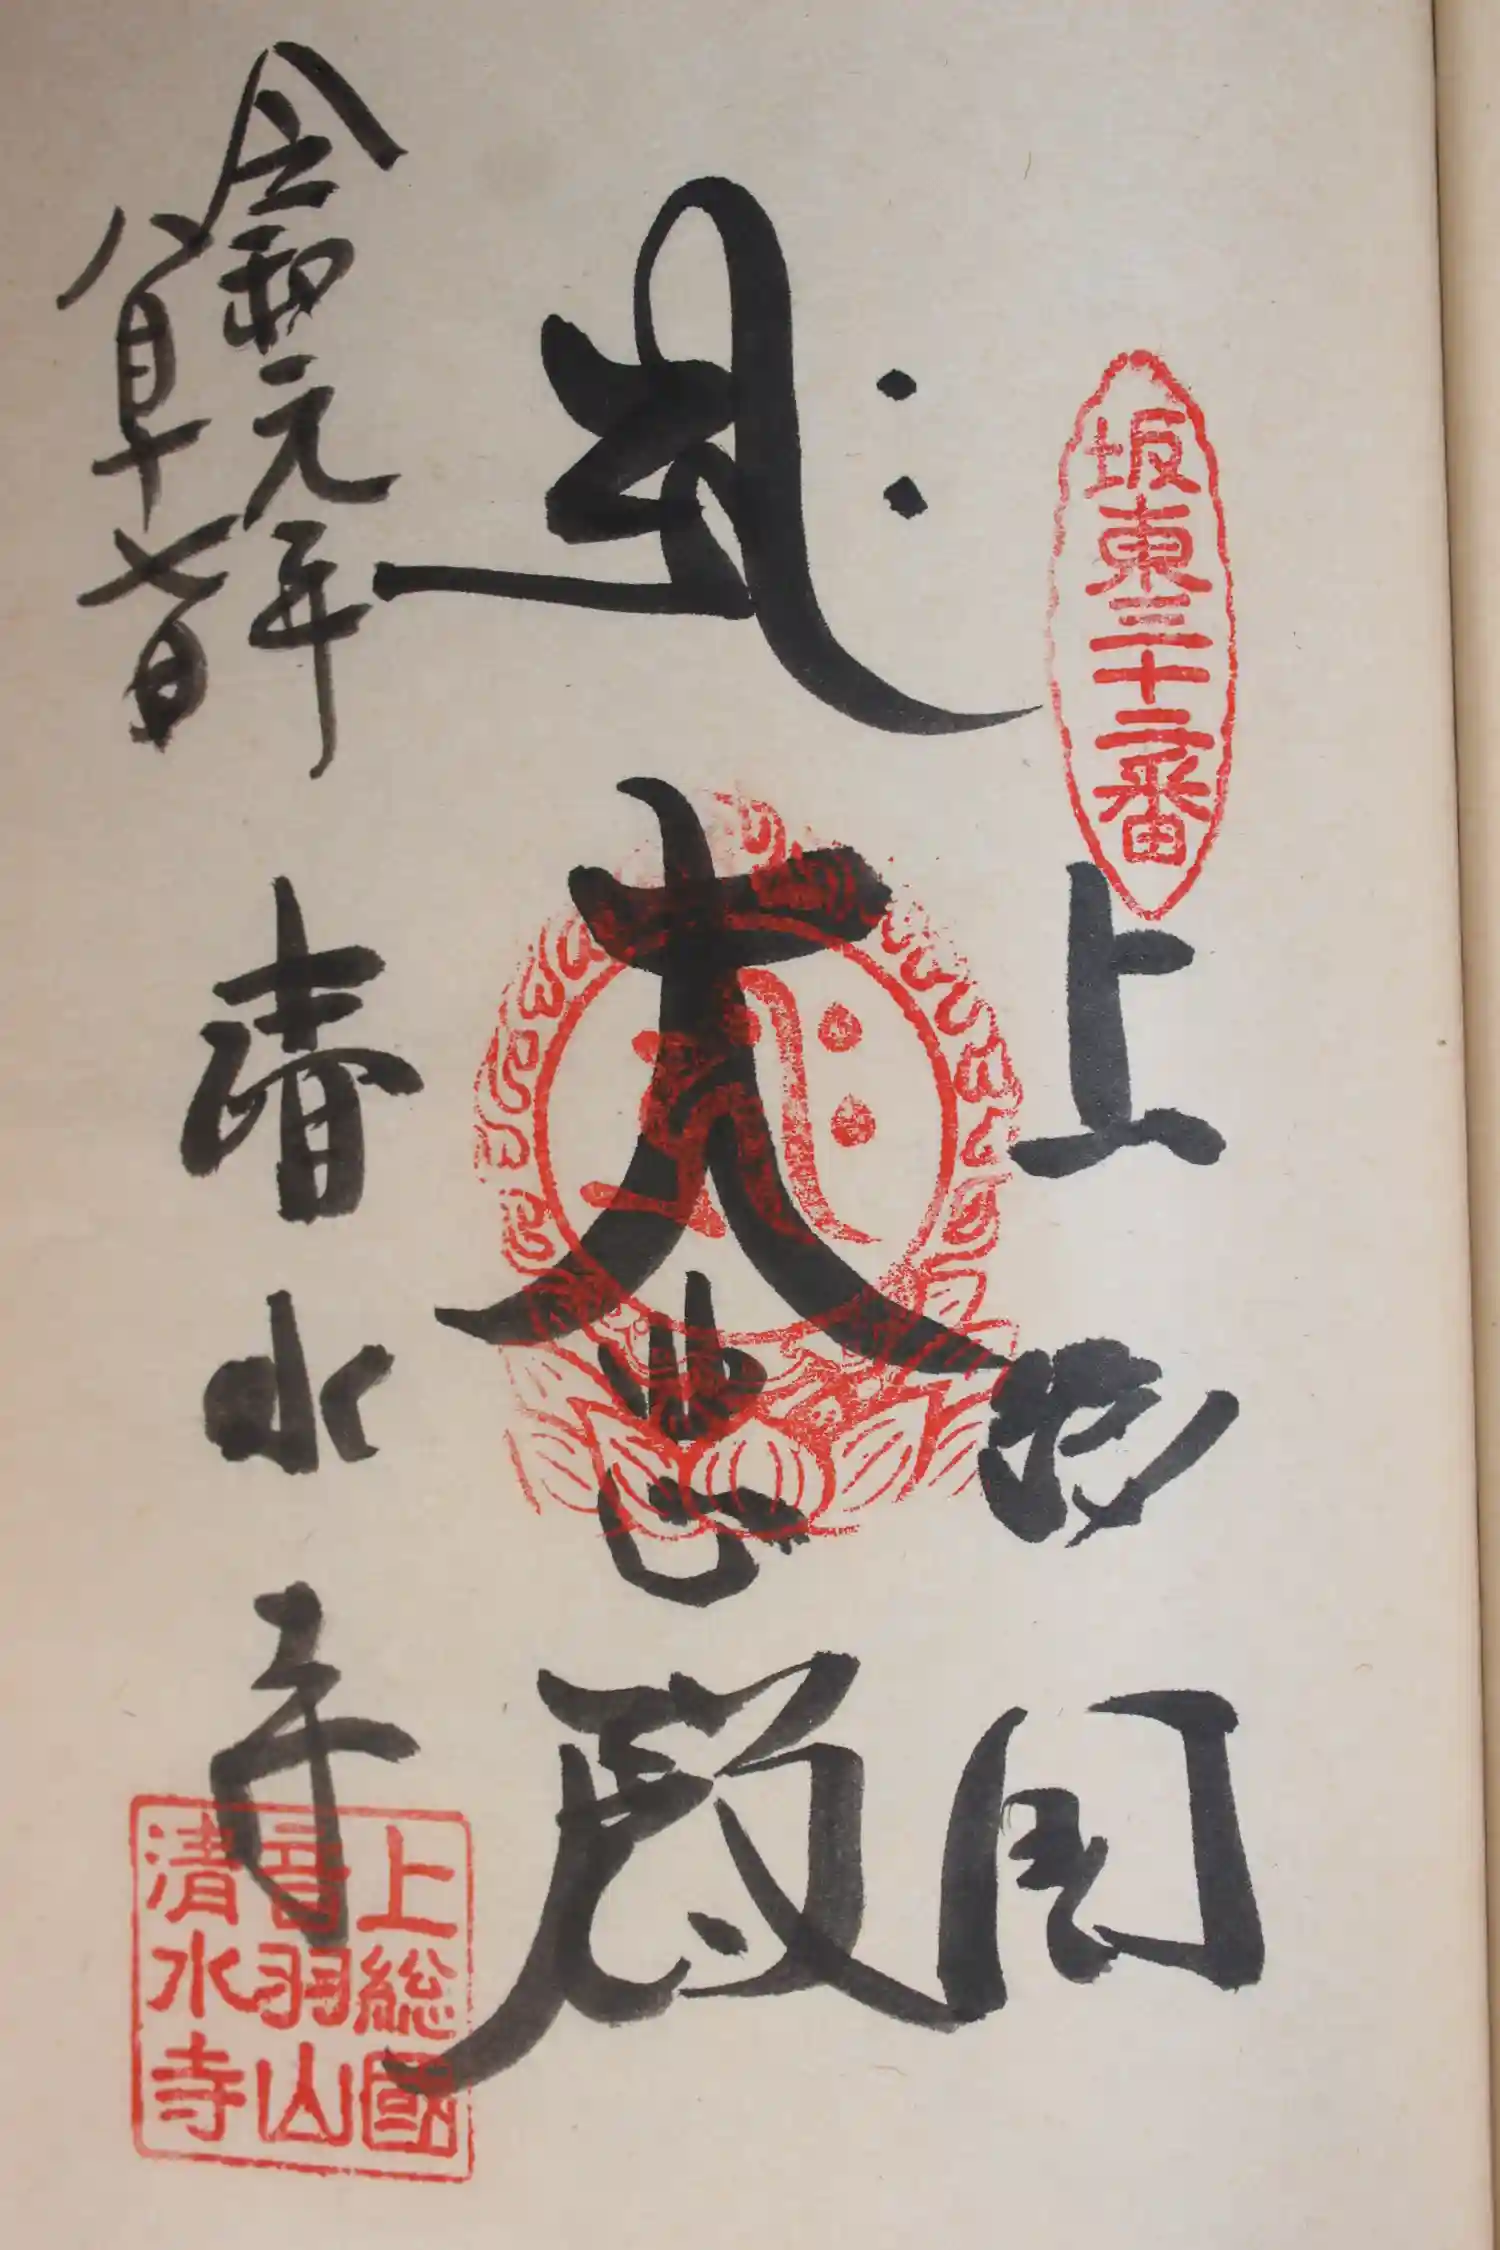 坂東三十二番
上総国
大悲殿
清水寺
令和元年
八月十七日
上総國
音羽山
清水寺